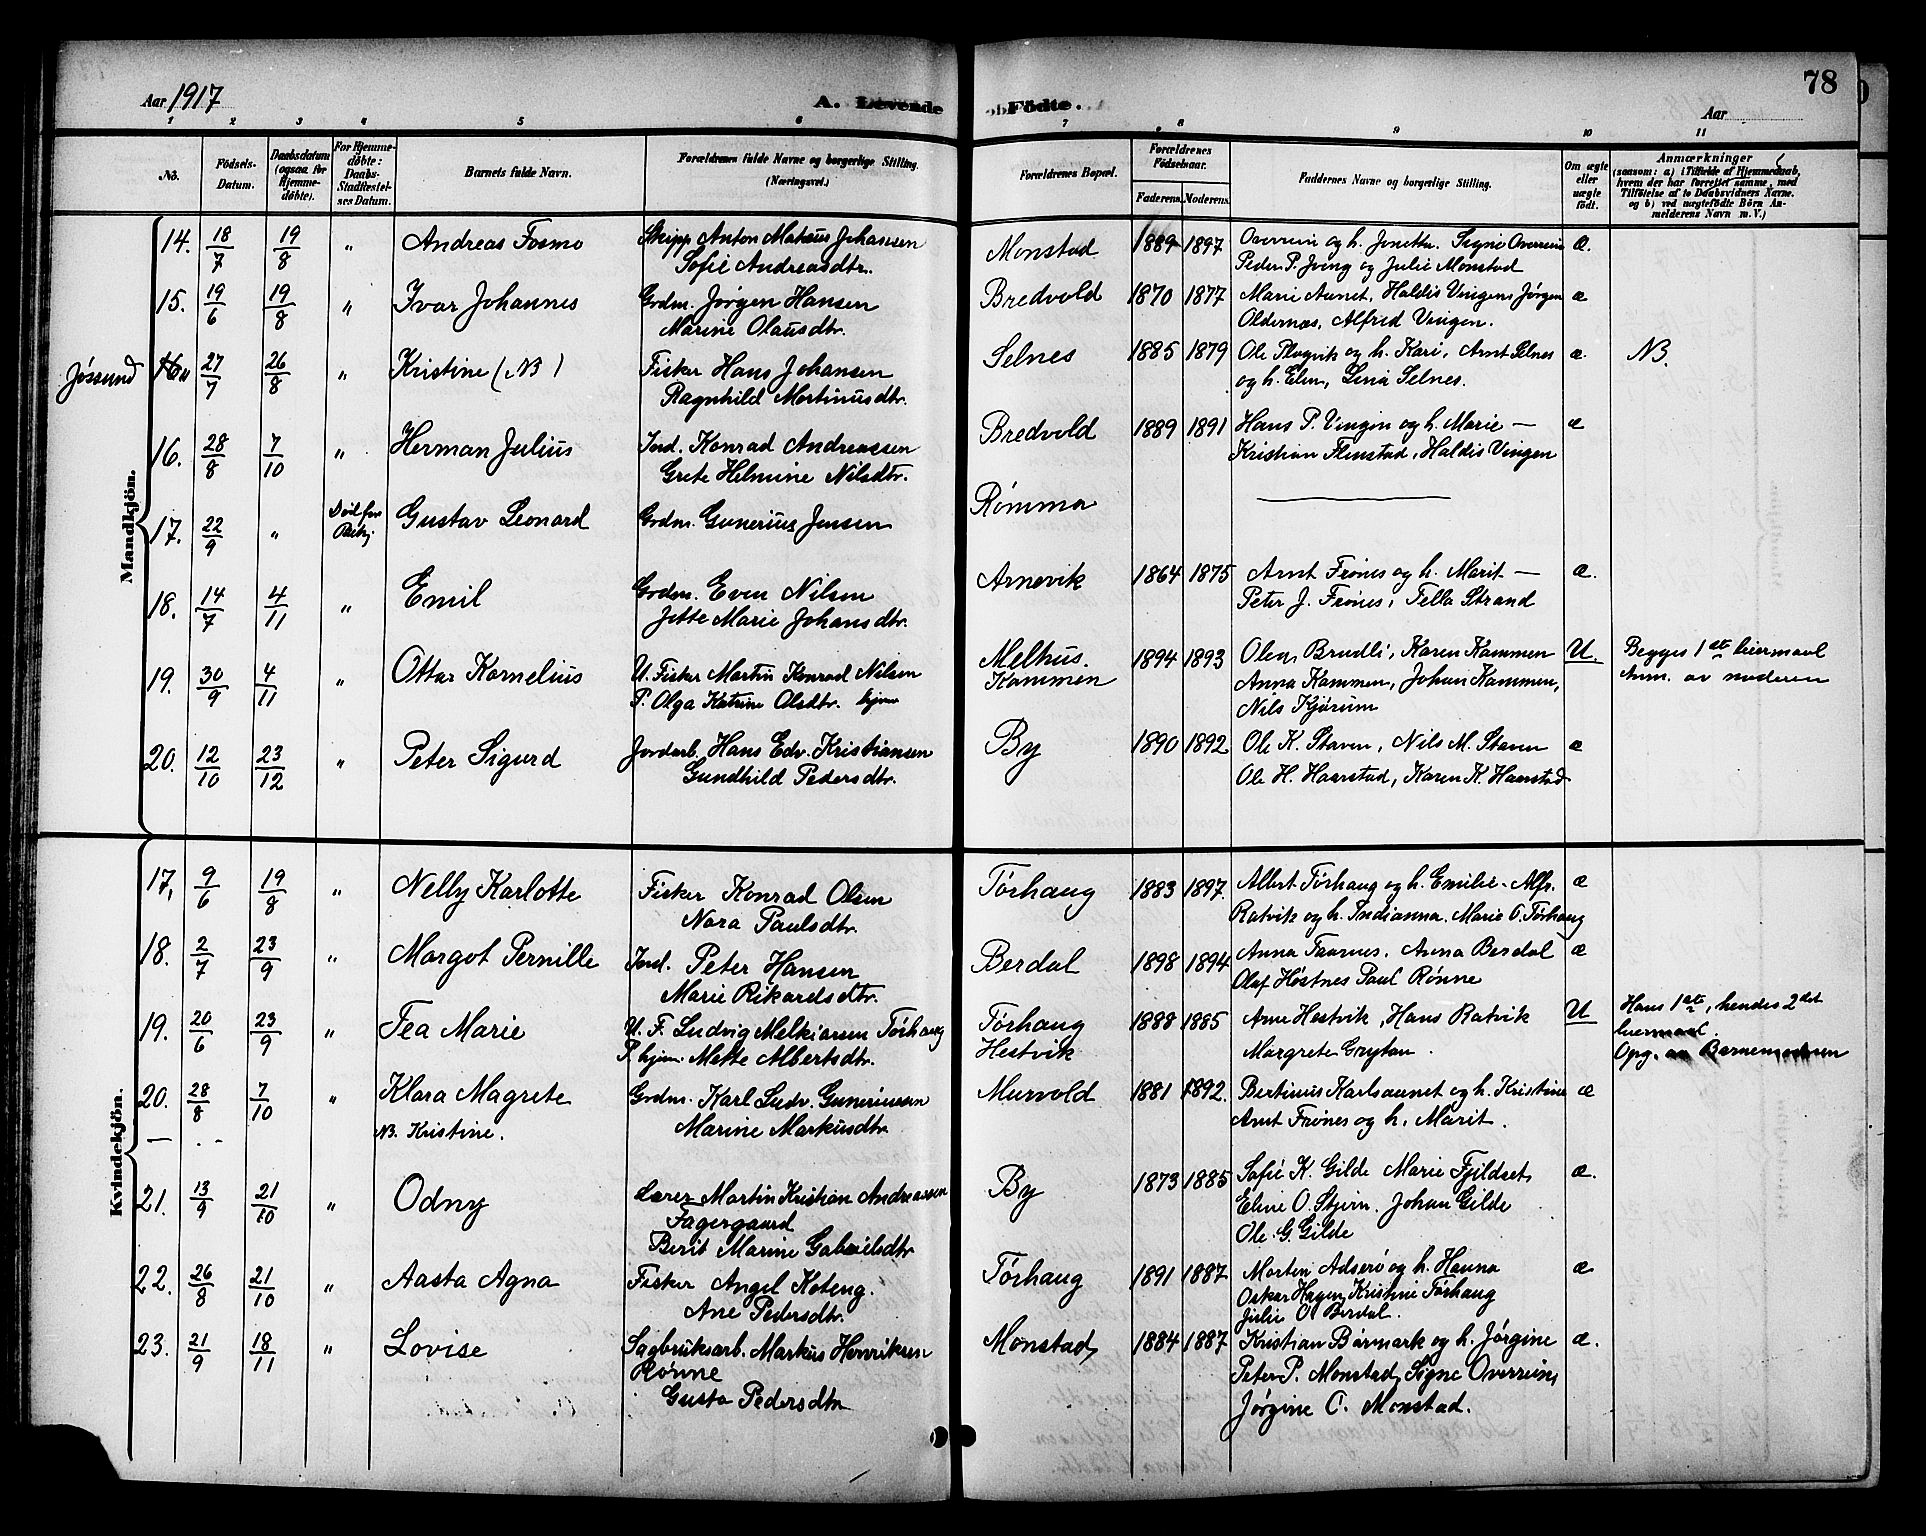 Aar 1917
A. Levende
Födte.
78
Aar
1 2 3 4 5 6 7 8 9 10 11
No.
Födsels-Datum.
Daabsdatum (ogsaa for Hjemmedöbte).
For Hjemmedöbte: Daabs-Stadfestelses Datum.
Barnets fulde Navn.
Forældrenes fulde Navne og borgerlige Stilling. (Næringsvei.)
Forældrenes Bopæl.
Forældrenes Födselsaar.
Faderens. Moderens.
Faddernes Navne og borgerlige Stilling.
Om ægte eller uægte födt.
Anmærkninger
(saasom: a) i Tilfælde af Hjemmedaab, hvem der har forrettet samme, med Tilföielse af to Daabsvidners Navne. og b) ved uægtefödte Börn Anmelderens Navn m. V.)
Mandkjön.
14. 18/7 19/8 " Andreas Fosmo Skipp Anton Mateus Johansen Monstad 1889 1897 Overrein og h. Jenette. Signe Overrein æ.
Sofie Andreasdtr. Peder P. Iveng og Julie Monstad
15. 19/6 19/8 " Ivar Johannes Grdm. Jørgen Hansen Bredvold 1870 1877 Marie Aunet, Haldis Vingen, Jørgen æ
Marine Olausdtr. Oldernæs, Alfred Vingen.
Jøssund 16. 27/7 26/8 " Kristine (NB) Fisker Hans Johansen Selnes 1885 1879 Ole Plogvik og h. Kari, Arnt Selnes æ. NB.
Ragnhild Martinusdtr. og h. Elen, Lina Selnes.
16. 28/8 7/10 " Herman Julius Jord. Konrad Andreassen Bredvold 1889 1891 Hans P. Vingen og h. Marie — æ
Grete Helmine Nilsdtr. Kristian Flenstad, Haldis Vingen
17. 22/9 " Død før Bekj. Gustav Leonard Grdm. Gunerius Jensen Rømma
18. 14/7 4/11 " Emil Grdm. Even Nilsen Arnevik 1864 1875 Arnt Frønes og h. Marit — æ.
Jette Marie Johansdtr. Peter J. Frønes, Tella Strand
19. 30/9 4/11 " Ottar Kornelius U. Fisker Martin Konrad Nilsen Melhus. 1894 1893 Olea Brudli, Karen Kammen U Begges 1ste leiermaal
P. Olga Katrine Olsdtr. hjem Kammen Anna Kammen, Johan Kammen, Anm. av moderen
Nils Kjørum
20. 12/10 23/12 " Peter Sigurd Jordarb. Hans Edv. Kristiansen By 1890 1892 Ole K. Staven, Nils M. Staven æ
Gundhild Pedersdtr. Ole H. Haarstad, Karen K. Haarstad
Kvindekjön.
17. 9/6 19/8 " Nelly Karlotte Fisker Konrad Olsen Tørhaug 1883 1897. Albert Tørhaug og h. Emilie. Alfr. æ
Nora Paulsdtr. Ratvik og h. Indianna. Marie O. Tørhaug
18. 2/7 23/9 " Margot Pernille Jord. Peter Hansen Berdal 1898 1894 Anna Taarnes, Anna Berdal æ
Marie Rikardsdtr. Olaf Høstnes Paul Rønne
19. 20/6 23/9 " Tea Marie U. F. Ludvig Melkiorsen Tørhaug Tørhaug 1888 1885 Arne Hestvik, Hans Ratvik U Hans 1ste, hendes 2det
P. hjem. Mette Albertsdtr. Hestvik Margrete Grøtan. leiermaal.
Opg. av Barnemoderen
20. 28/8 7/10 " Klara Magrete Grdm. Karl Ludv. Guneriussen Murvold 1881 1892. Bertinus Karlsaunet og h. Kristine æ
— . . NB. Kristine. Marine Markusdtr. Arnt Frønes og h. Marit.
21. 13/9 21/10 " Odny Lærer Martin Kristian Andreassen By 1873 1885 Sofie K. Gilde Marie Fjeldset, æ.
Fagergaard Eline O. Stjern. Johan Gilde
Berit Marine Gabrielsdtr Ole G. Gilde
22. 26/8 21/10 " Aasta Agna Fisker Angel Koteng. Tørhaug 1891 1887 Morten Adserø og h. Hanna æ
Ane Pedersdtr. Oskar Hagen, Kristine Tørhaug
Julie O. Berdal.
23. 21/9 18/11 " Lovise Sagbruksarb. Markus Henriksen Monstad 1884 1887 Kristian Børmark og h. Jørgine æ.
Rønne Peter P. Monstad, Signe Overrein,
Gusta Pedersdtr Jørgine C. Monstad.